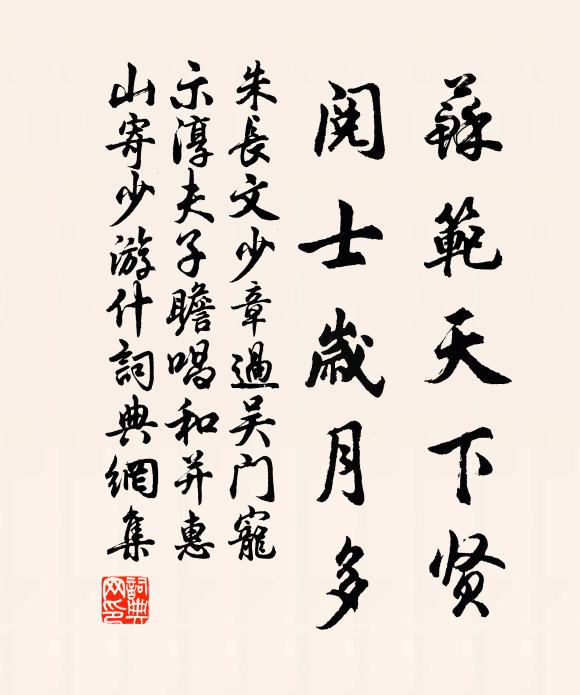 蘇範天下贤
閱士歲月多
朱長文少章過吴门寵
示淳夫子瞻唱和并惠
山寄少游什詞典網集
詞典网印